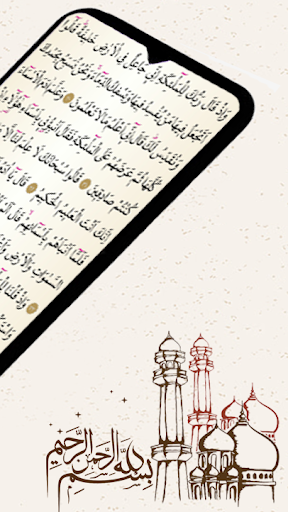 وَإِذْ قَالَ رَبُّكَ لِلْمَلَٰٓئِكَةِ إِنِّى جَاعِلٌ فِى ٱلْأَرْضِ خَلِيفَةً قَالُوٓا۟
أَتَجْعَلُ فِيهَا مَن يُفْسِدُ فِيهَا وَيَسْفِكُ ٱلدِّمَآءَ وَنَحْنُ نُسَبِّحُ بِحَمْدِكَ
وَنُقَدِّسُ لَكَ قَالَ إِنِّىٓ أَعْلَمُ مَا لَا تَعْلَمُونَ وَعَلَّمَ ءَادَمَ ٱلْأَسْمَآءَ
كُلَّهَا ثُمَّ عَرَضَهُمْ عَلَى ٱلْمَلَٰٓئِكَةِ فَقَالَ أَنۢبِـُٔونِى بِأَسْمَآءِ هَٰٓؤُلَآءِ
كُنتُمْ صَٰدِقِينَ قَالُوا۟ سُبْحَٰنَكَ لَا عِلْمَ
إِنَّكَ أَنتَ ٱلْعَلِيمُ ٱلْحَكِيمُ قَالَ
فَلَمَّآ أَنۢبَأَهُم بِأَسْمَآئِهِمْ قَالَ
ٱلسَّمَٰوَٰتِ وَٱلْأَرْضِ
وَإِذْ قُلْنَا
بِسْمِ اللهِ الرَّحْمٰنِ الرَّحِيْمِ